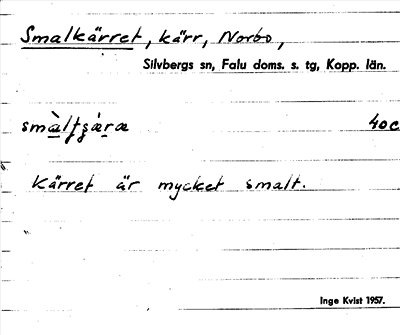 Smalkärret, kärr, Norbo,
Silvbergs sn, Falu doms. s. tg, Kopp. län.
40c
Kärret är mycket smalt.
Inge Kvist 1957.